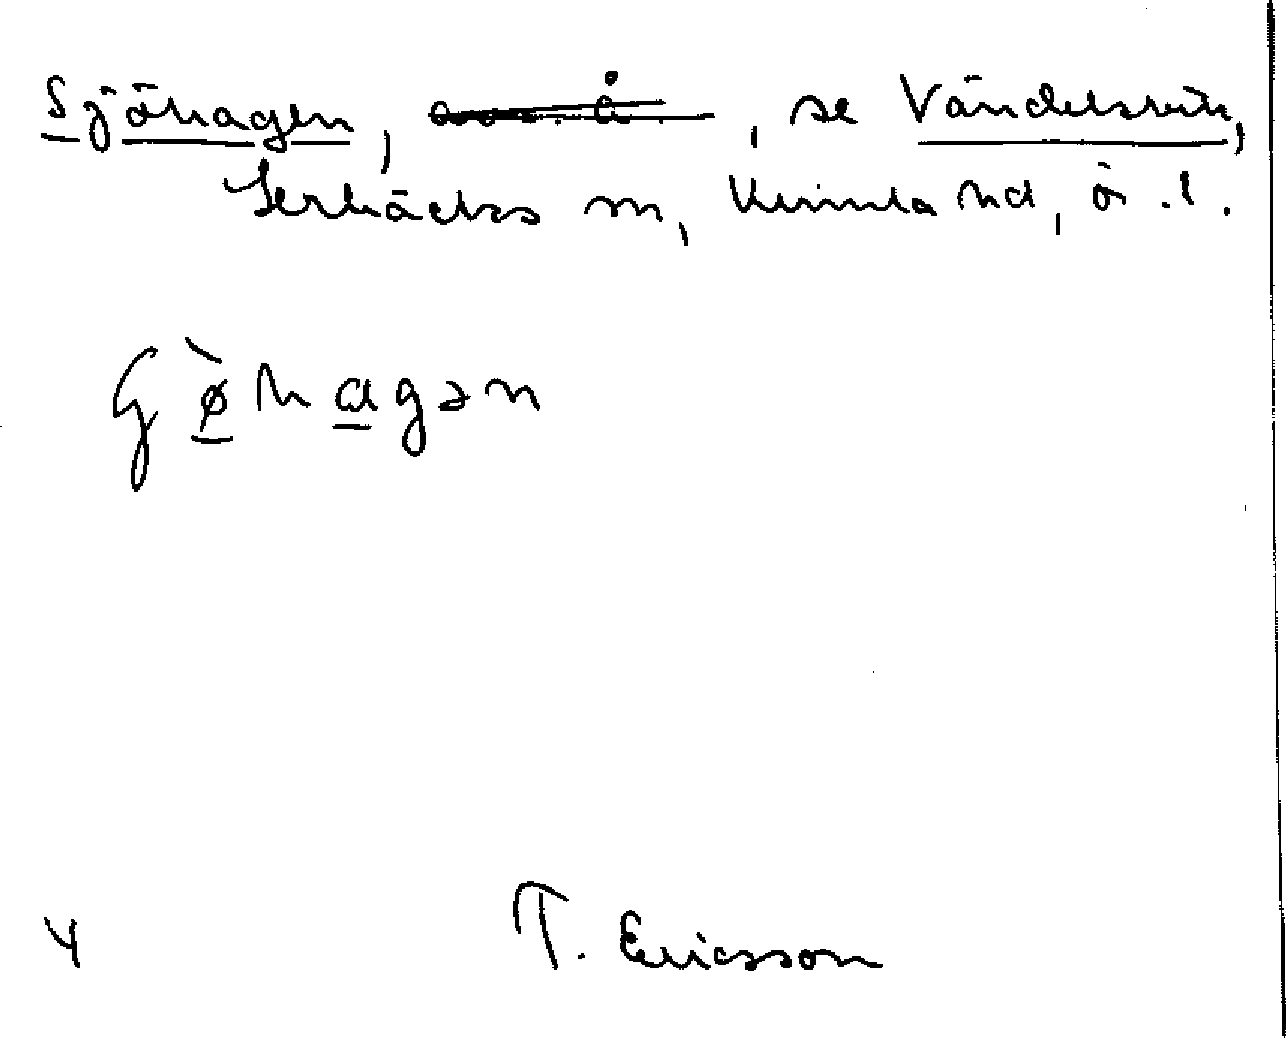 Sjöhagen, , se Vändelsvik,
Yerbäcks m, Kvimla hd, ö.l.
Gø̀hagən
4 T. Ericsson